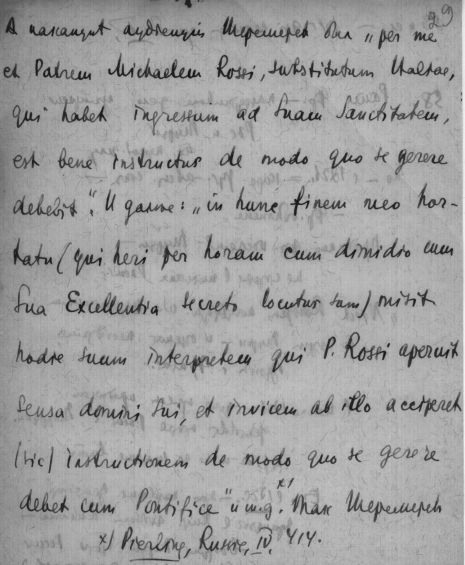 29
А накануне аудиенции Шереметев был „per me
et Patrem Michaelem Rossi, substitutum Italiae,
qui habet ingressum ad Suam Sanctitatem,
est bene instructus de modo quo se gerere
debebit“. И далее: „in hunc finem meo hor-
tatu (qui heri per horam cum dimidio cum
Sua Excellentia secreto locutus sum) misit
hodie suum interpretem qui P. Rossi aperuit
sensa domini sui, et invicem ab illo acciperet
(sic) instructionem de modo quo se gerere
debet cum Pontifice“ и т.д. x) Так Шереметев
x) Pierling, Russie, IV, 414.